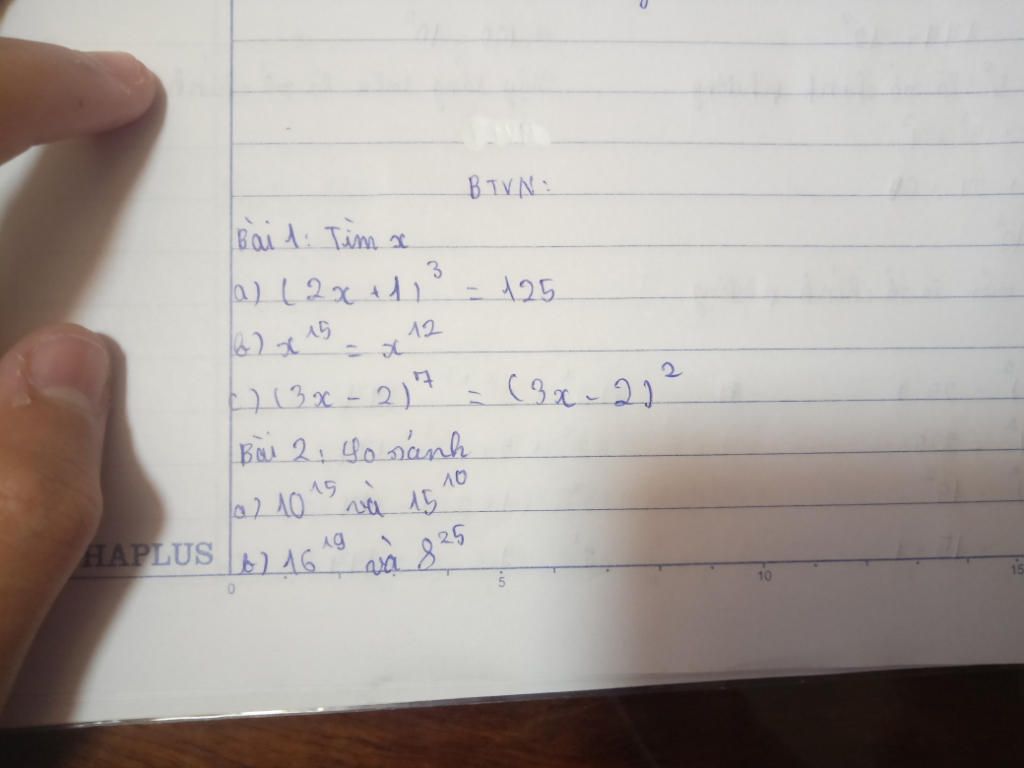 BTVN:
Bài 1: Tìm x
a) (2x + 1)³ = 125
b) x¹⁵ = x¹²
c) (3x - 2)⁷ = (3x - 2)²
Bài 2: So sánh
a) 10¹⁵ và 15¹⁰
b) 16¹⁹ và 8²⁵
HAPLUS
0 5 10 15